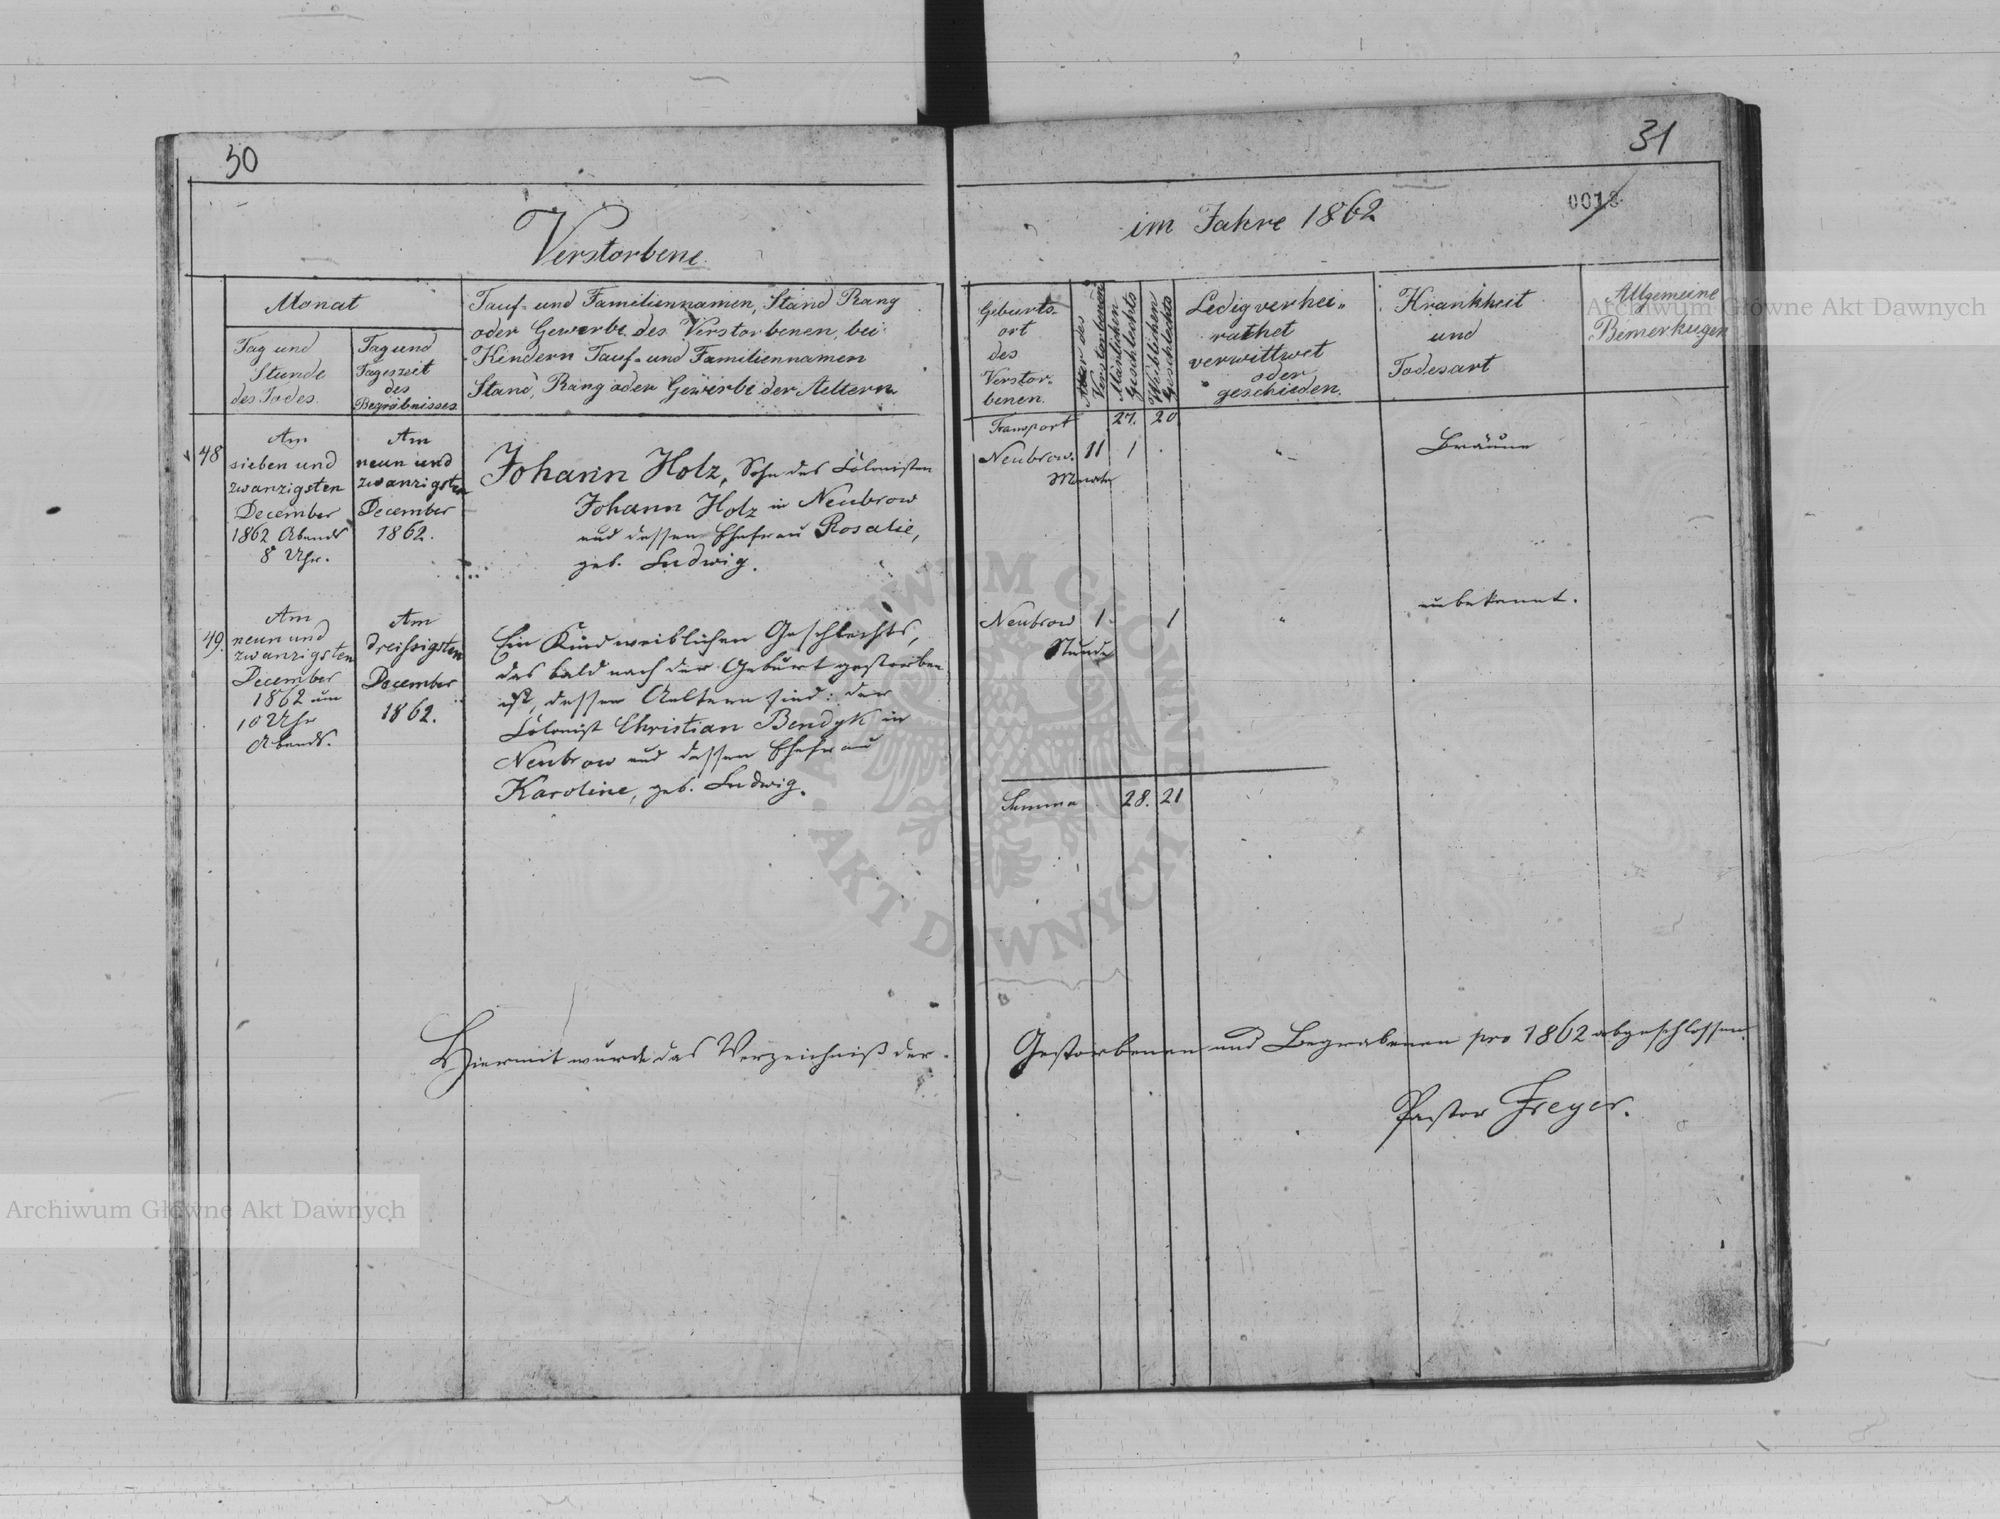 30
Verstorbene.
Monat
Tag und
Stunde
des Todes.
Tag und
Tageszeit
des
Begräbnisses
Tauf- und Familiennamen, Stand Rang
oder Gewerbe des Verstorbenen, bei
Kindern Tauf- und Familiennamen
Stand, Rang oder Gewerbe der Aeltern
48
Am
sieben und
zwanzigsten
December
1862 Abends
8 Uhr.
Am
neun und
zwanzigsten
December
1862.
Johann Holz, Sohn des Colonisten
Johann Holz in Neubrow
und dessen Ehefrau Rosalie,
geb. Ludwig.
49.
Am
neun und
zwanzigsten
December
1862 um
10 Uhr
Abends.
Am
dreissigsten
December
1862.
Ein Kind weiblichen Geschlechts,
das bald nach der Geburt gestorben
ist, dessen Aeltern sind: der
Colonist Christian Bendyk in
Neubrow und dessen Ehefrau
Karoline, geb. Ludwig.
Hiermit wurde das Verzeichniß der
31
0018
im Jahre 1862
Geburts-
ort
des
Verstor-
benen.
Alter des
Verstorbenen
Mänlichen
Geschlechts
Weiblichen
Geschlechts
Ledig verhei-
rathet
verwittwet
oder
geschieden.
Krankheit
und
Todesart
Allgemeine
Bemerkugen
Transport 27. 20
Neubrow. 11 1 Bräune
Monate
Neubrow 1 1 unbekannt.
Stunde
Summa 28. 21
Gestorbenen und Begrabenen pro 1862 abgeschlossen.
Pastor Freyer.
Archiwum Główne Akt Dawnych
Archiwum Główne Akt Dawnych
ARCHIWUM GŁÓWNE
AKT DAWNYCH